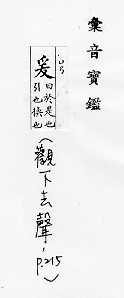 彙音寶鑑
爰
曰於是也
引也換也
(觀下去聲,
p.215)